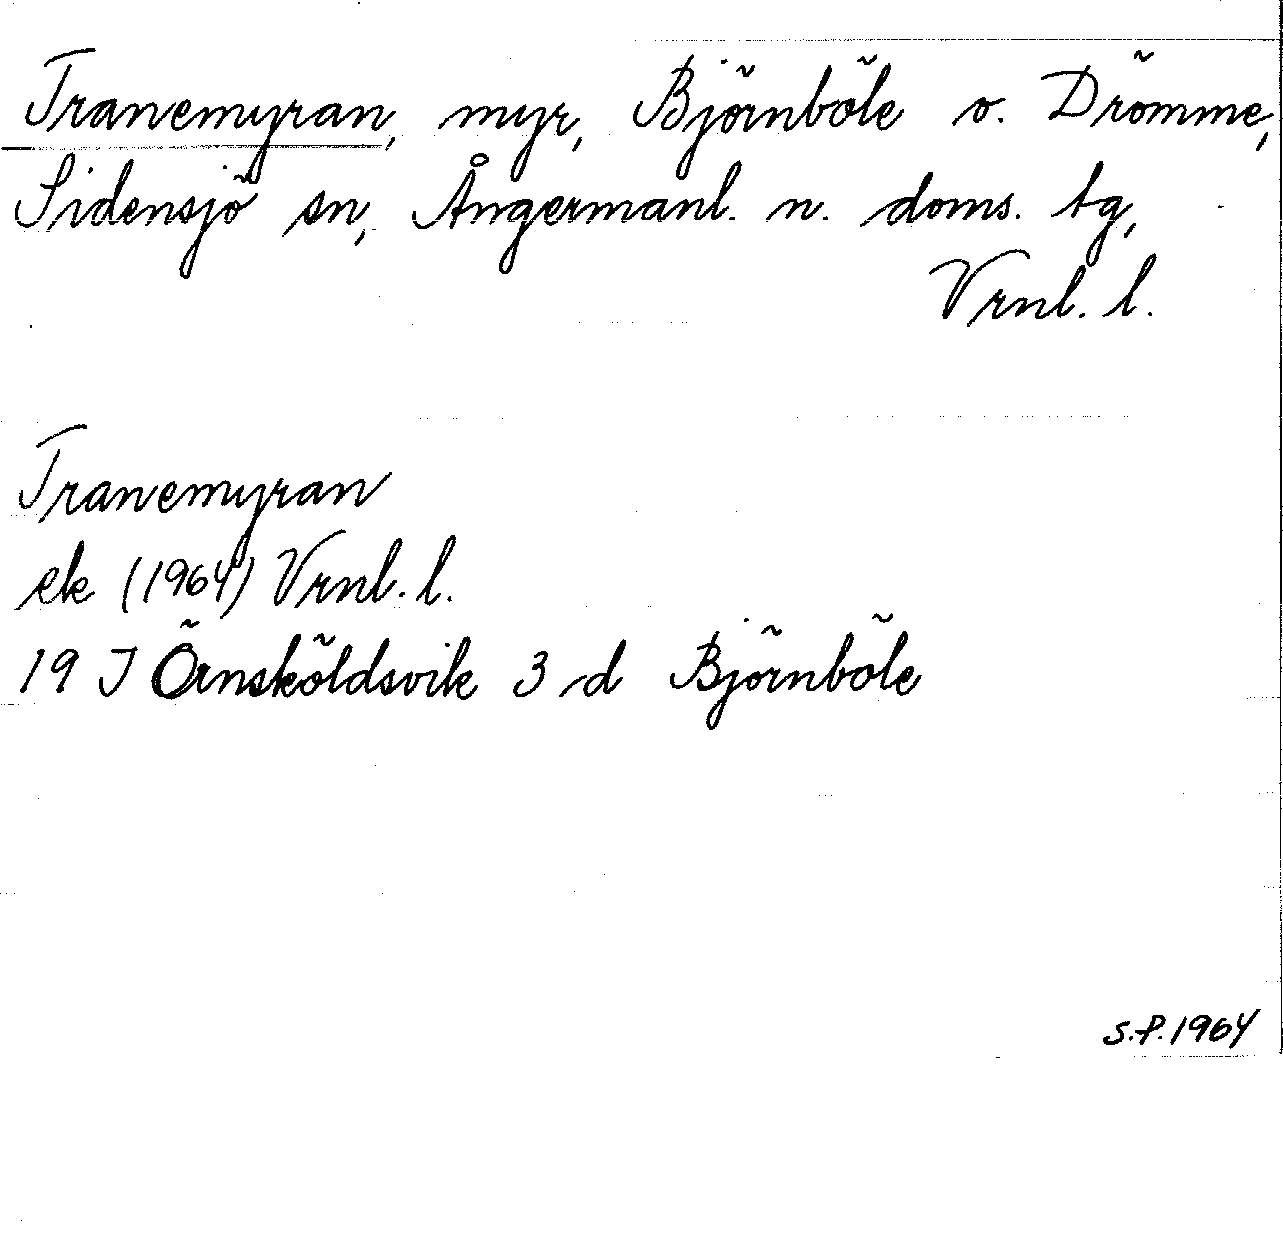 Tranemyran, myr, Björnböle o. Drömme,
Sidensjö sn, Ångermanl. n. doms. tg,
Vrnl. l.
Tranemyran
ek (1964) Vrnl. l.
19 J Örnsköldsvik 3 d Björnböle
S.P. 1964